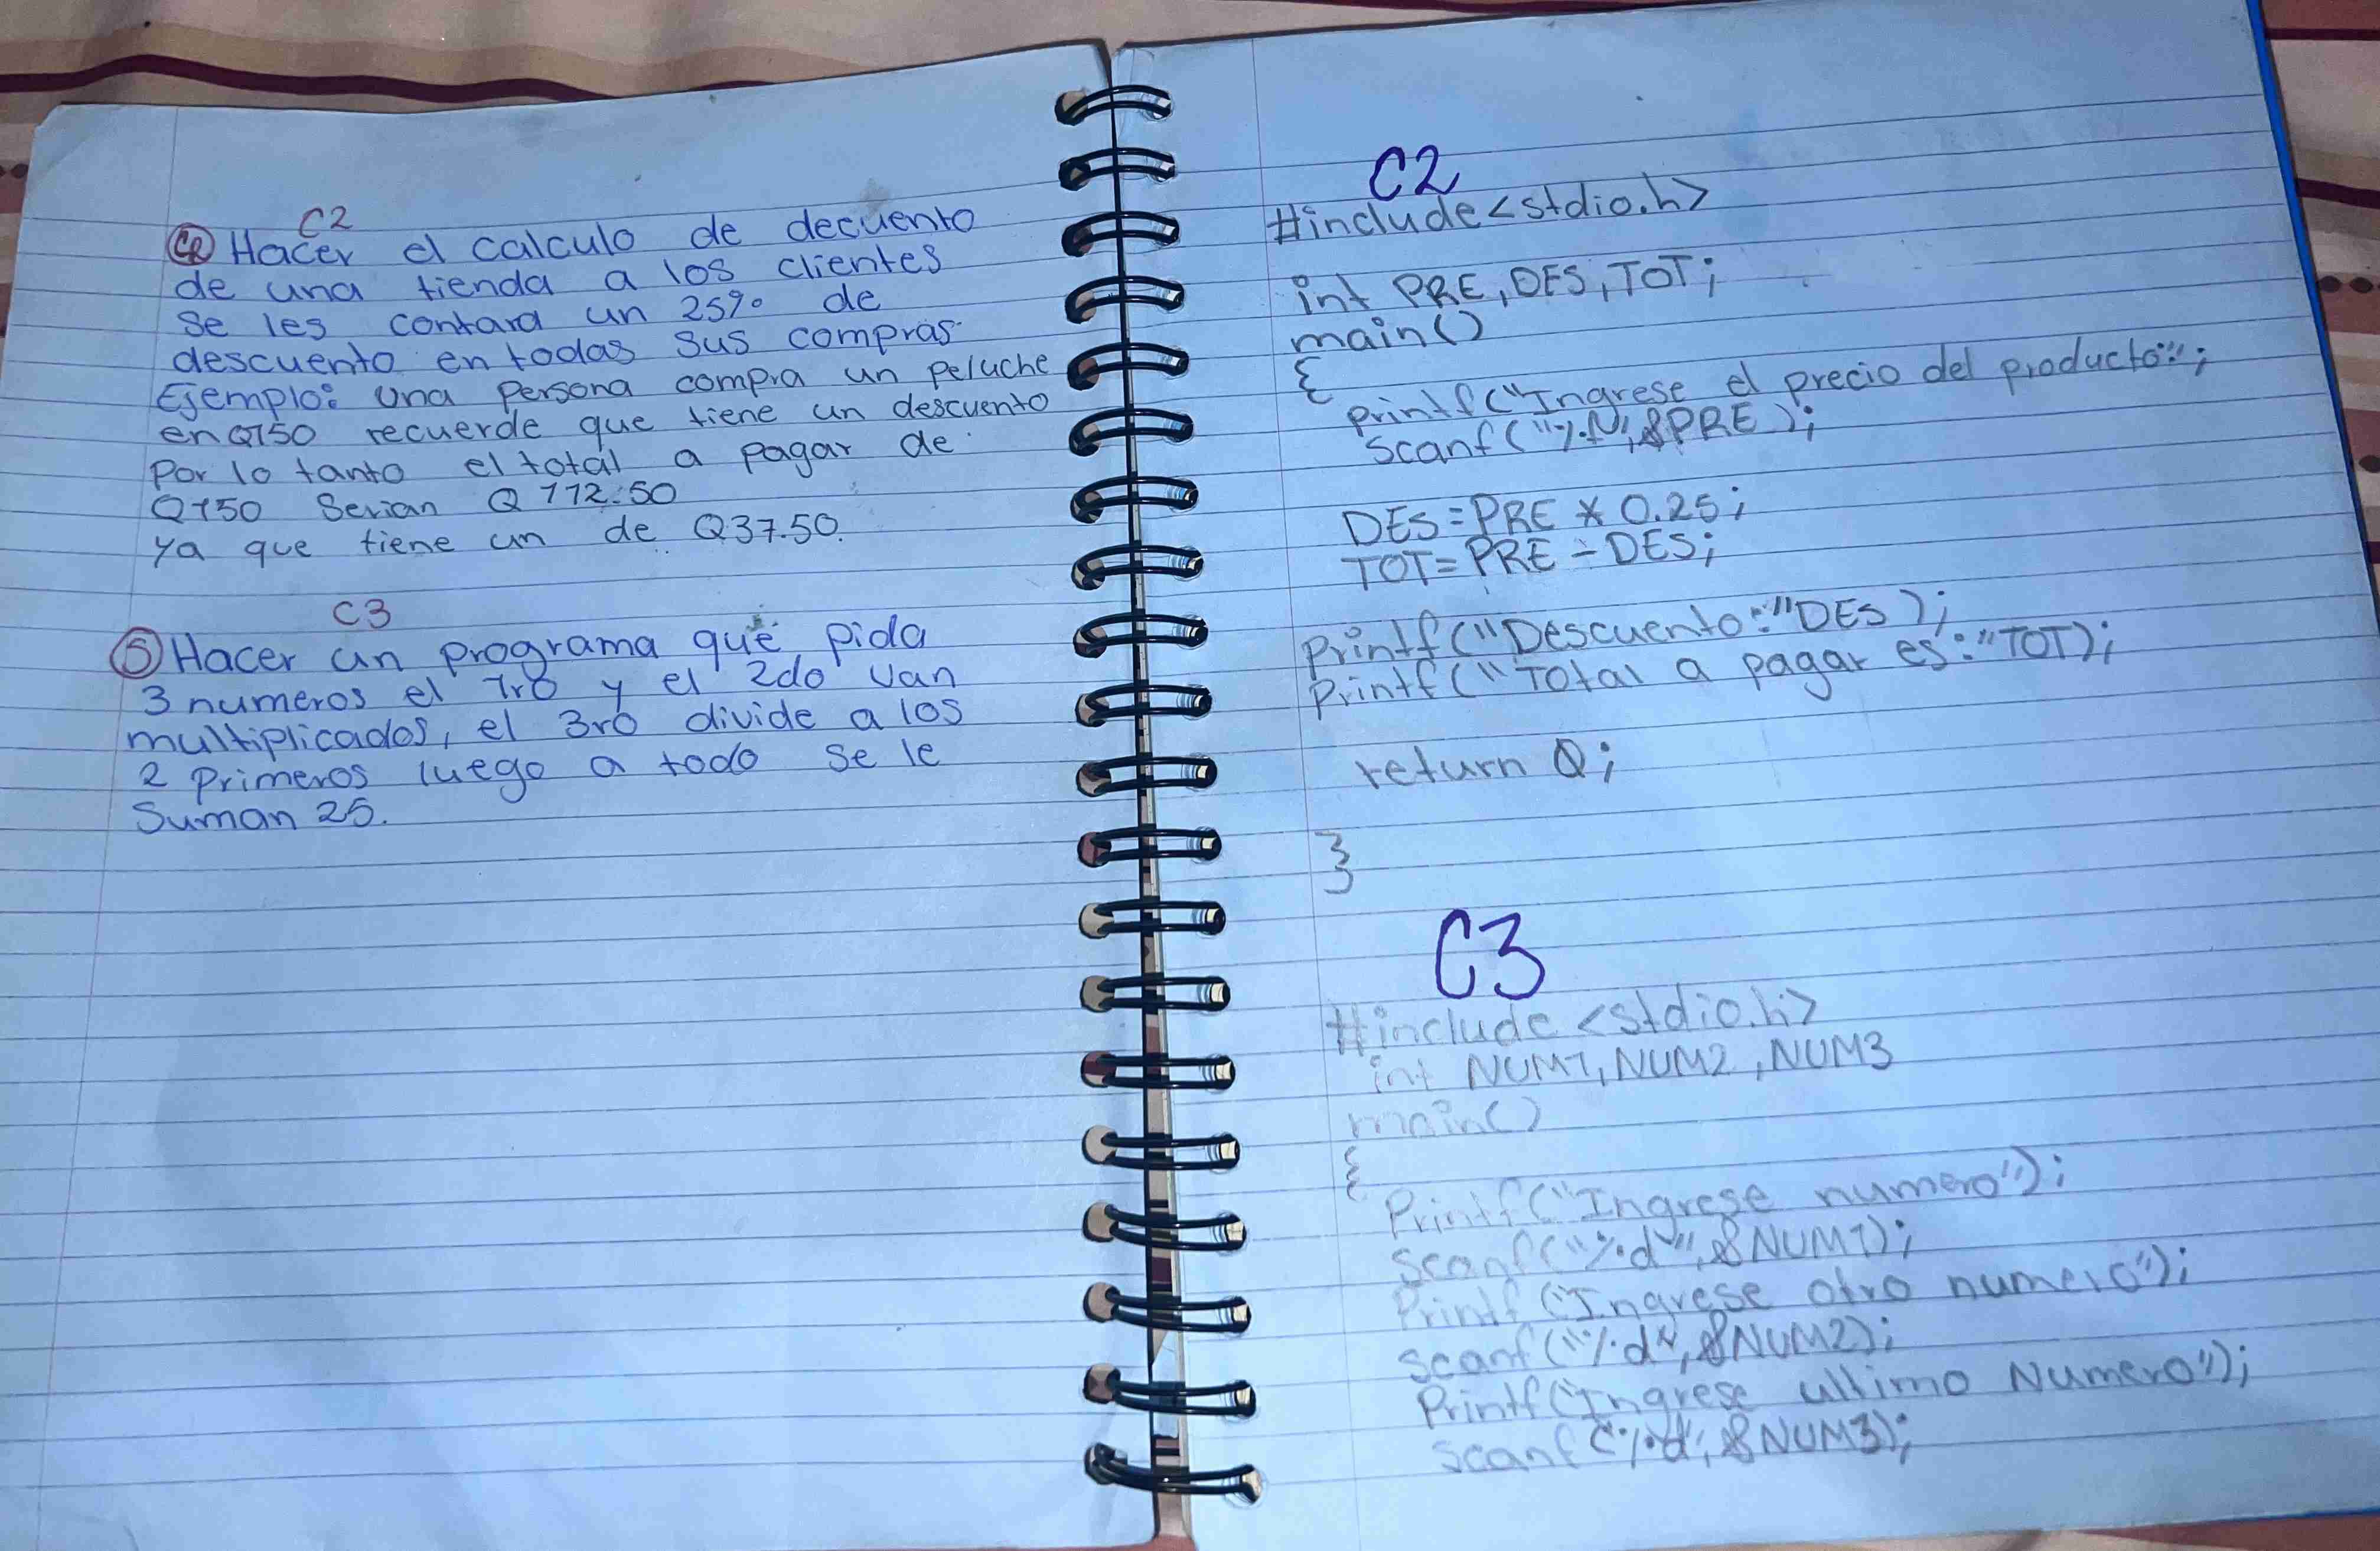 C2
④ Hacer el calculo de decuento
de una tienda a los clientes
se les contara un 25% de
descuento en todas sus compras
Ejemplo: Una persona compra un peluche
en Q150 recuerde que tiene un descuento
Por lo tanto el total a pagar de
Q150 Serian Q 112.50
ya que tiene un de Q37.50.
C3
⑤ Hacer un programa que pida
3 numeros el 1ro y el 2do van
multiplicados, el 3ro divide a los
2 Primeros luego a todo se le
Suman 25.
C2
#include<stdio.h>
int PRE, DES, TOT;
main()
{
printf("Ingrese el precio del producto:";
scanf("%        &PRE);
DES=PRE * 0.25;
TOT=PRE - DES;
Printf("Descuento:"DES);
Printf("Total a pagar es:"TOT);
return 0;
}
C3
#include <stdio.h>
int NUM1, NUM2, NUM3
main()
{
Printf("Ingrese numero");
scanf("%d", &NUM1);
Printf("Ingrese otro numero");
scanf("%d", &NUM2);
Printf("Ingrese ultimo Numero");
scanf("%d", &NUM3);